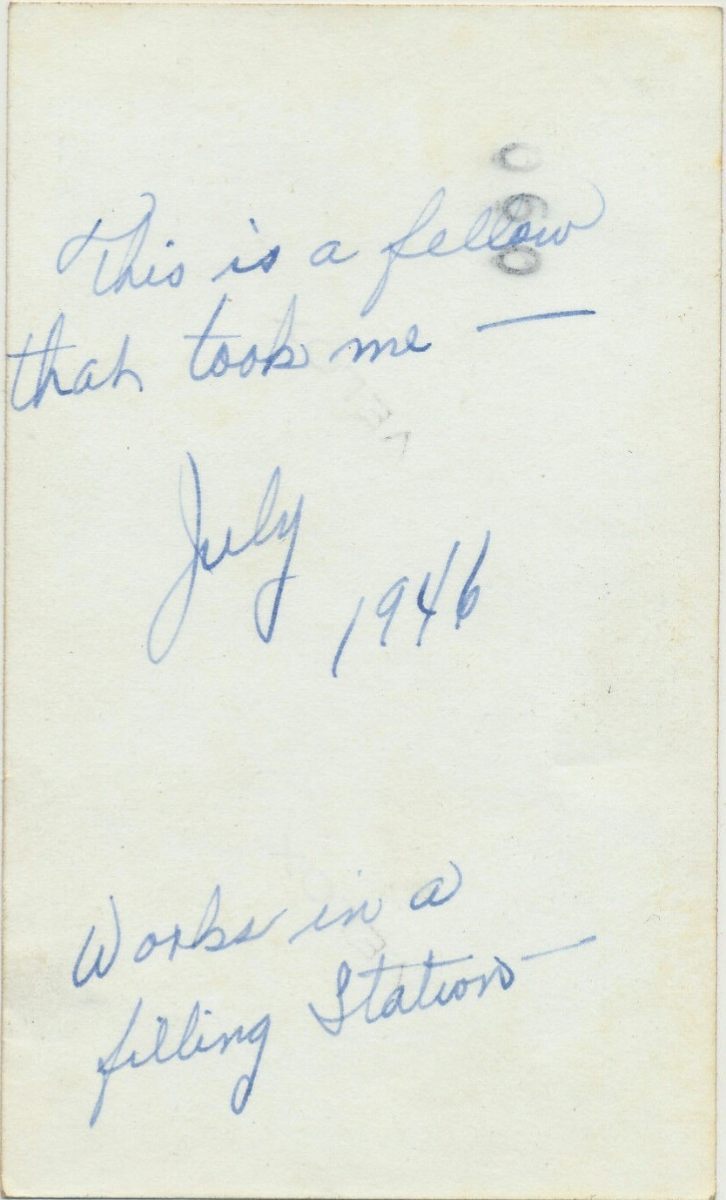 060
This is a fellow
that took me —
July
1946
Works in a
filling Station —